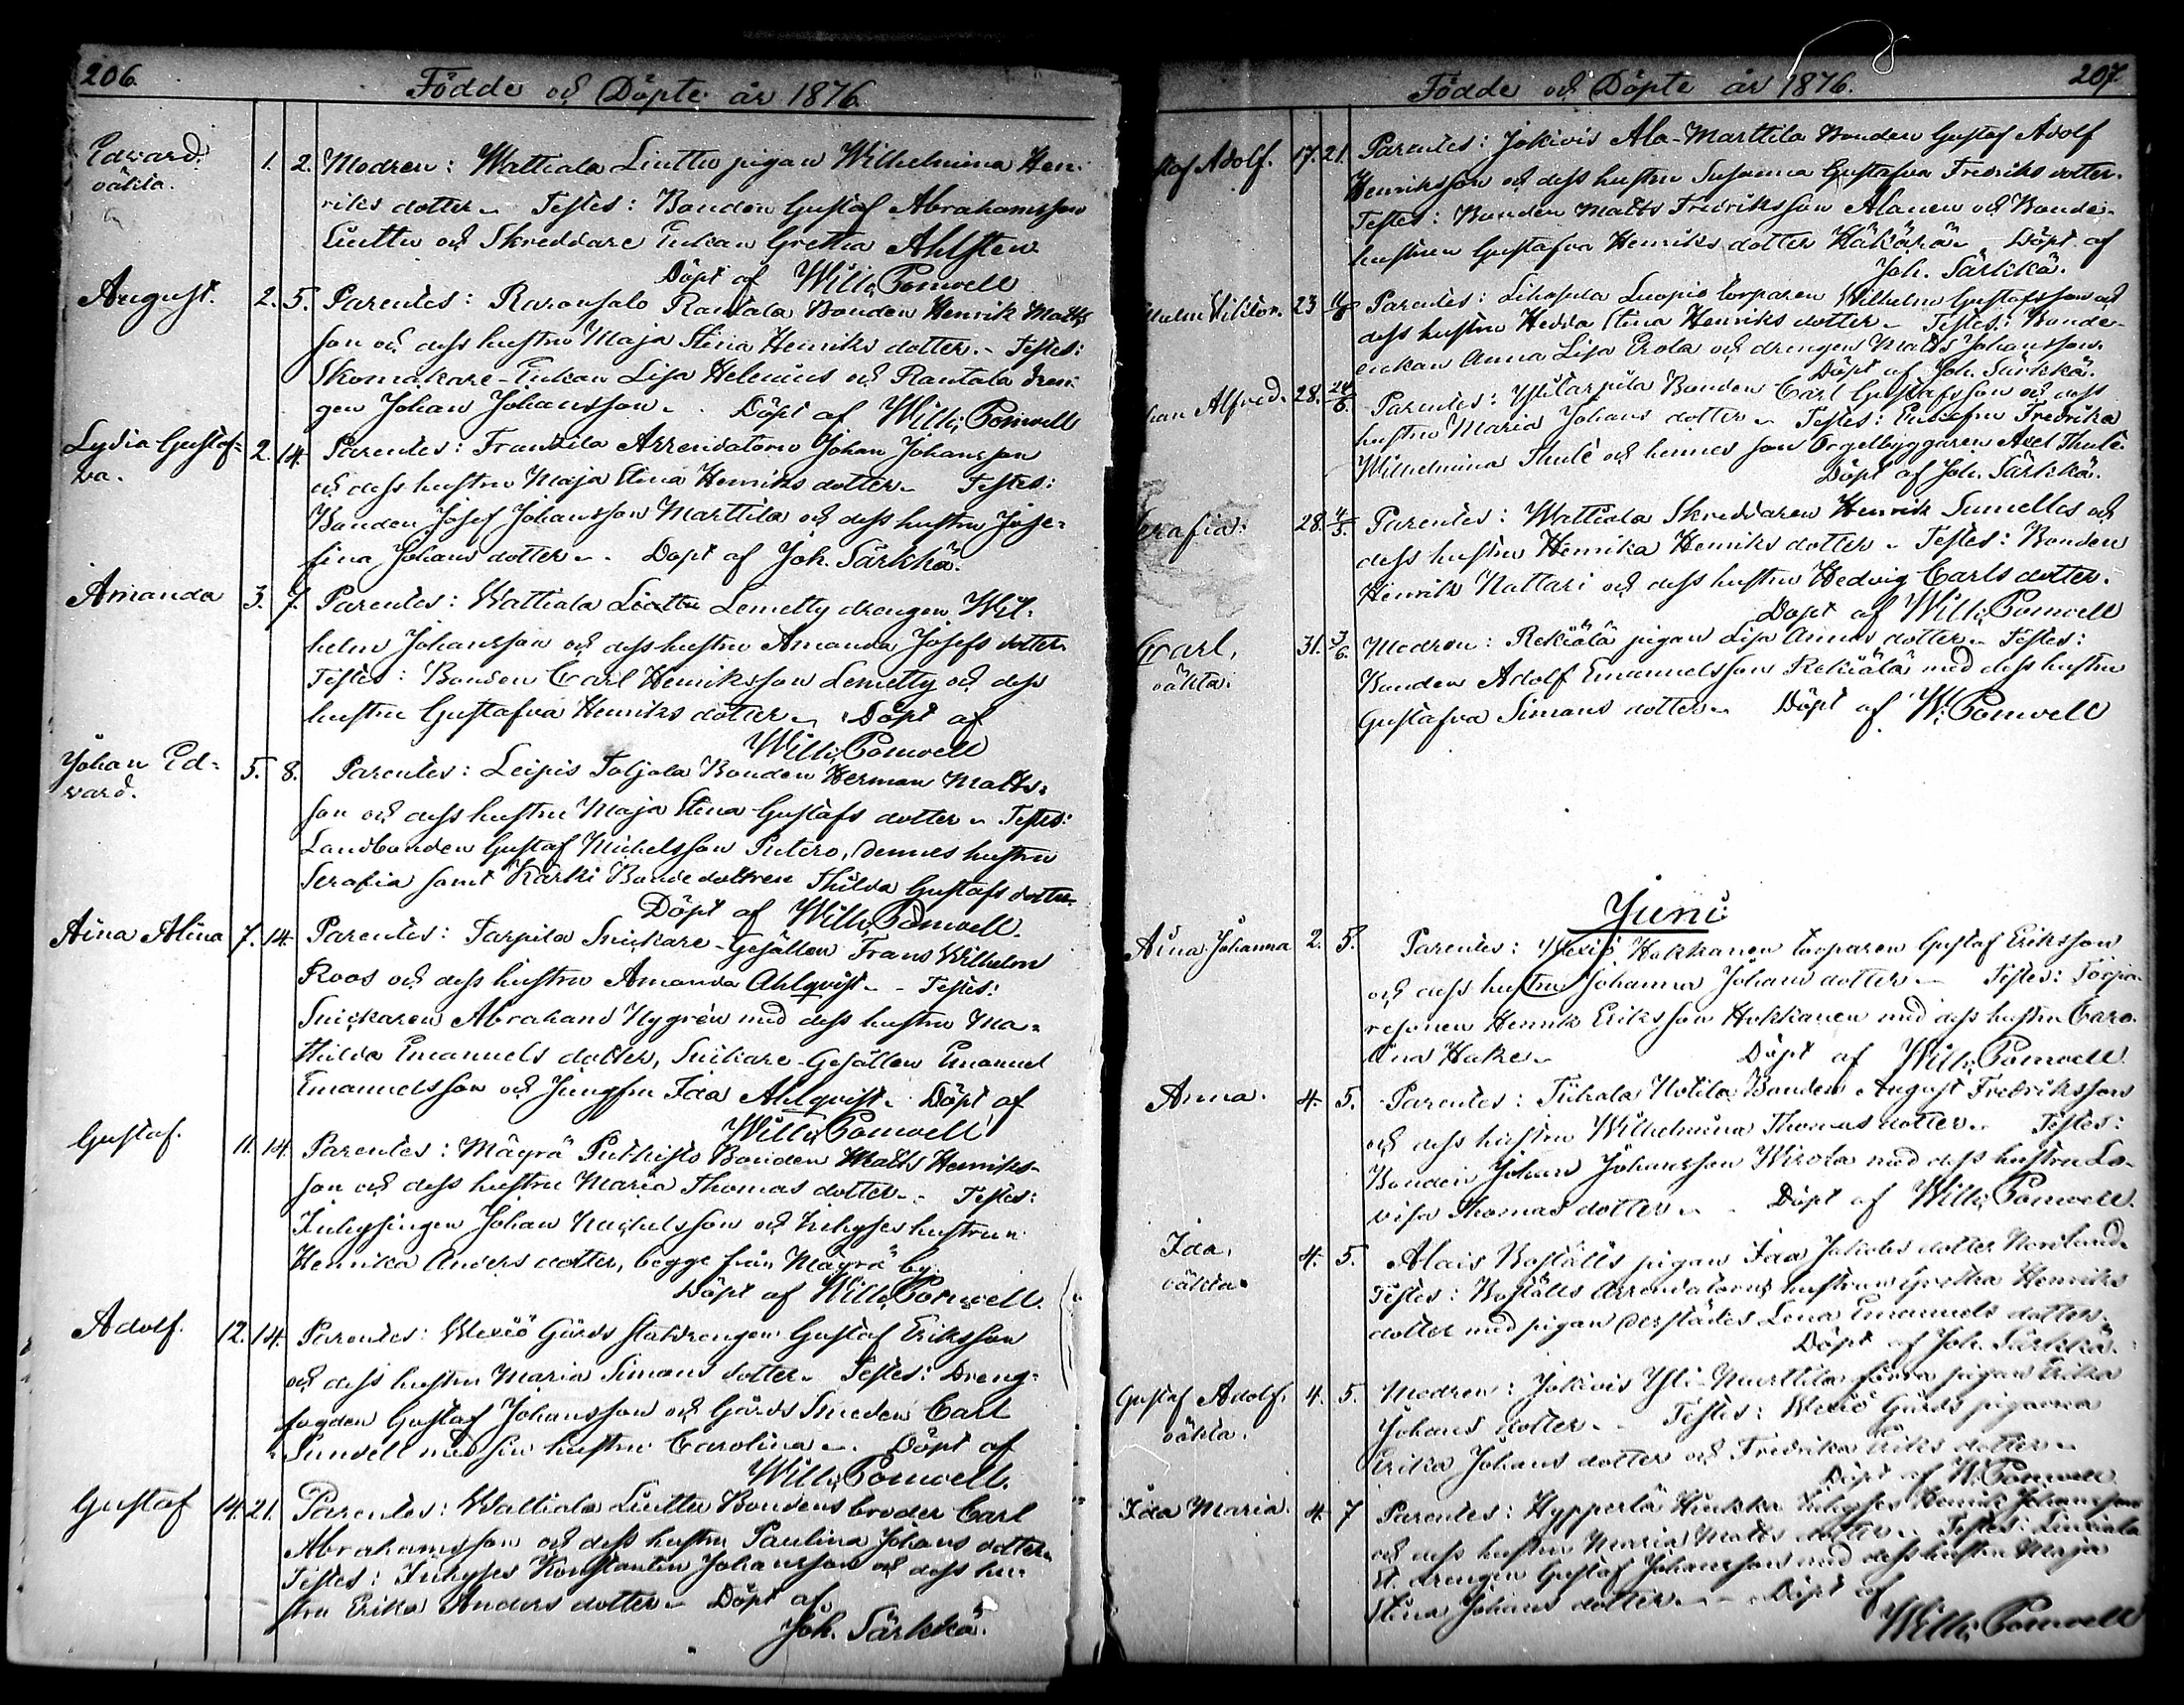 206.
Födde och Döpte år 1876.
Edvard. 1. 2. Modren: Wattiala Liuttu pigan Wilhelmina Hen-
oäkta. riks dotter. Testes: Bonden Gustaf Abrahamsson
Liuttu och Skreddare Enkan Gretha Ahlsten.
Döpt af Wilh. Pomoell
August. 2. 5. Parentes: Rantala Bonden Henrik Matts
son och dess hustru Maja Stina Henriks dotter. Testes:
Skomakare-Enkan Lisa Helenius och Rantala dren-
gen Johan Johansson. Döpt af Wilh. Pomoell
Lydia Gustaf- 2. 14. Parentes: Frantsila Arrendatorn Johan Johansson
va. och dess hustru Maja Stina Henriks dotter. Testes:
Bonden Josef Johansson Marttila och dess hustru Jose-
fina Johans dotter. Döpt af Joh. Särkkä.
Amanda 3. 7. Parentes: Wattiala Liuttu Lemetty drengen Wil-
helm Johansson och dess hustru Amanda Josefs dotter
Testes: Bonden Carl Henriksson Lemetty och dess
hustru Gustafva Henriks dotter. Döpt af
Wilh. Pomoell
Johan Ed- 5. 8. Parentes: Leipis Toljala Bonden Herman Matts-
vard. son och dess hustru Maja Stina Gustafs dotter. Testes:
Landbonden Gustaf Michelsson Putero, dennes hustru
Serafia samt Kärki Bondedottren Thilda Gustafs dotter.
Döpt af Wilh. Pomoell.
Aina Alina 7. 14. Parentes: Parpila Snickare-Gesällen Frans Wilhelm
Roos och dess hustru Amanda Ahlqvist. Testes:
Snickaren Abraham Nygrén med dess hustru Ma-
thilda Emanuels dotter, Snickare-Gesällen Emanuel
Emanuelsson och Jungfru Ida Ahlqvist. Döpt af
Wilh. Pomoell
Gustaf. 11. 14. Parentes: Mäyrä Puthisto Bonden Matts Henriks-
son och dess hustru Maria Thomas dotter. Testes:
Inhysingen Johan Michelsson och Inhyseshustrun
Henrika Anders dotter, begge från Mäyrä by.
Döpt af Wilh. Pomoell.
Adolf. 12. 14. Parentes: Wexiö Gårds statdrengen Gustaf Eriksson
och dess hustru Maria Simons dotter. Testes: Dreng-
fogden Gustaf Johansson och Gårds Smeden Carl
Sunvell med sin hustru Carolina. Döpt af
Wilh. Pomoell.
Gustaf 14. 21. Parentes: Wattiala Liuttu Bondens broder Carl
Abrahamsson och dess hustru Paulina Johans dotter.
Testes: Inhyses Konstantin Johansson och dess hu-
stru Erika Anders dotter. Döpt af
Joh. Särkkä.
207.
Födde och Döpte år 1876.
staf Adolf. 17. 21. Parentes: Jokivis Ala-Marttila Bonden Gustaf Adolf
Henriksson och dess hustru Susanna Gustafva Fredriks dotter.
Testes: Bonden Matts Fredriksson Alanen och Bonde-
hustrun Gustafva Henriks dotter Häkärä. Döpt af
Joh. Särkkä.
23 Parentes: Luopio torparen Wilhelm Gustafsson och
dess hustru Hedda Stina Henriks dotter. Testes: Bonde-
enkan Anna Lisa Erola och drengen Matts Johansson.
Döpt af Joh. Särkkä.
han Alfred. 28. Parentes: Bonden Carl Gustafsson och dess
hustru Maria Johans dotter. Testes: Fredrika
Wilhelmina Thulé och hennes son Orgelbyggaren Axel Thulé.
Döpt af Joh. Särkkä.
erafia. 28. 4/5. Parentes: Wattiala Skreddaren Henrik Sumelles och
dess hustru Henrika Henriks dotter. Testes: Bonden
Henrik Nattari och dess hustru Hedvig Carls dotter.
Döpt af Wilh. Pomoell
Carl, 31. 3/6. Modren: Rekiälä pigan Lisa Annas dotter. Testes:
oäkta. Bonden Adolf Emanuelsson Rekiälä med dess hustru
Gustafva Simons dotter. Döpt af W. Pomoell
Juni
Aina Johanna 2. 5. Parentes: Wexiö Hokkanen torparen Gustaf Eriksson
och dess hustru Johanna Johans dotter. Testes: Torpa-
resonen Henrik Eriksson Hokkanen med dess hustru Caro-
lina Hake. Döpt af Wilh. Pomoell.
Anna. 4. 5. Parentes: Tiihala Notila Bonden August Fredriksson
och dess hustru Wilhelmina Thomas dotter. Testes:
Bonden Johan Johansson Wirola med dess hustru Lo-
visa Thomas dotter. Döpt af Wilh. Pomoell.
Ida, 4. 5. Alais Boställs pigan Ida Jakobs dotter Nordlund.
oäkta. Testes: Boställs Arrendatorns hustrun Gretha Henriks
dotter med pigan derstädes Lena Emanuels dotter.
Döpt af Joh. Särkkä.
Gustaf Adolf, 4. 5. Modren: Jokivis Yli-Marttila pigan Erika
oäkta. Johans dotter. Testes: Wexiö Gårds pigorna
Erika Johans dotter och Fredrika Eriks dotter.
Döpt af W. Pomoell
Ida Maria. 4. 7 Parentes: Hypperlä Inhyses Henrik Johansson
och dess hustru Maria Matts dotter. Testes:
drengen Gustaf Johansson med dess hustru Maja
Stina Johans dotter. Döpt af
Wilh. Pomoell